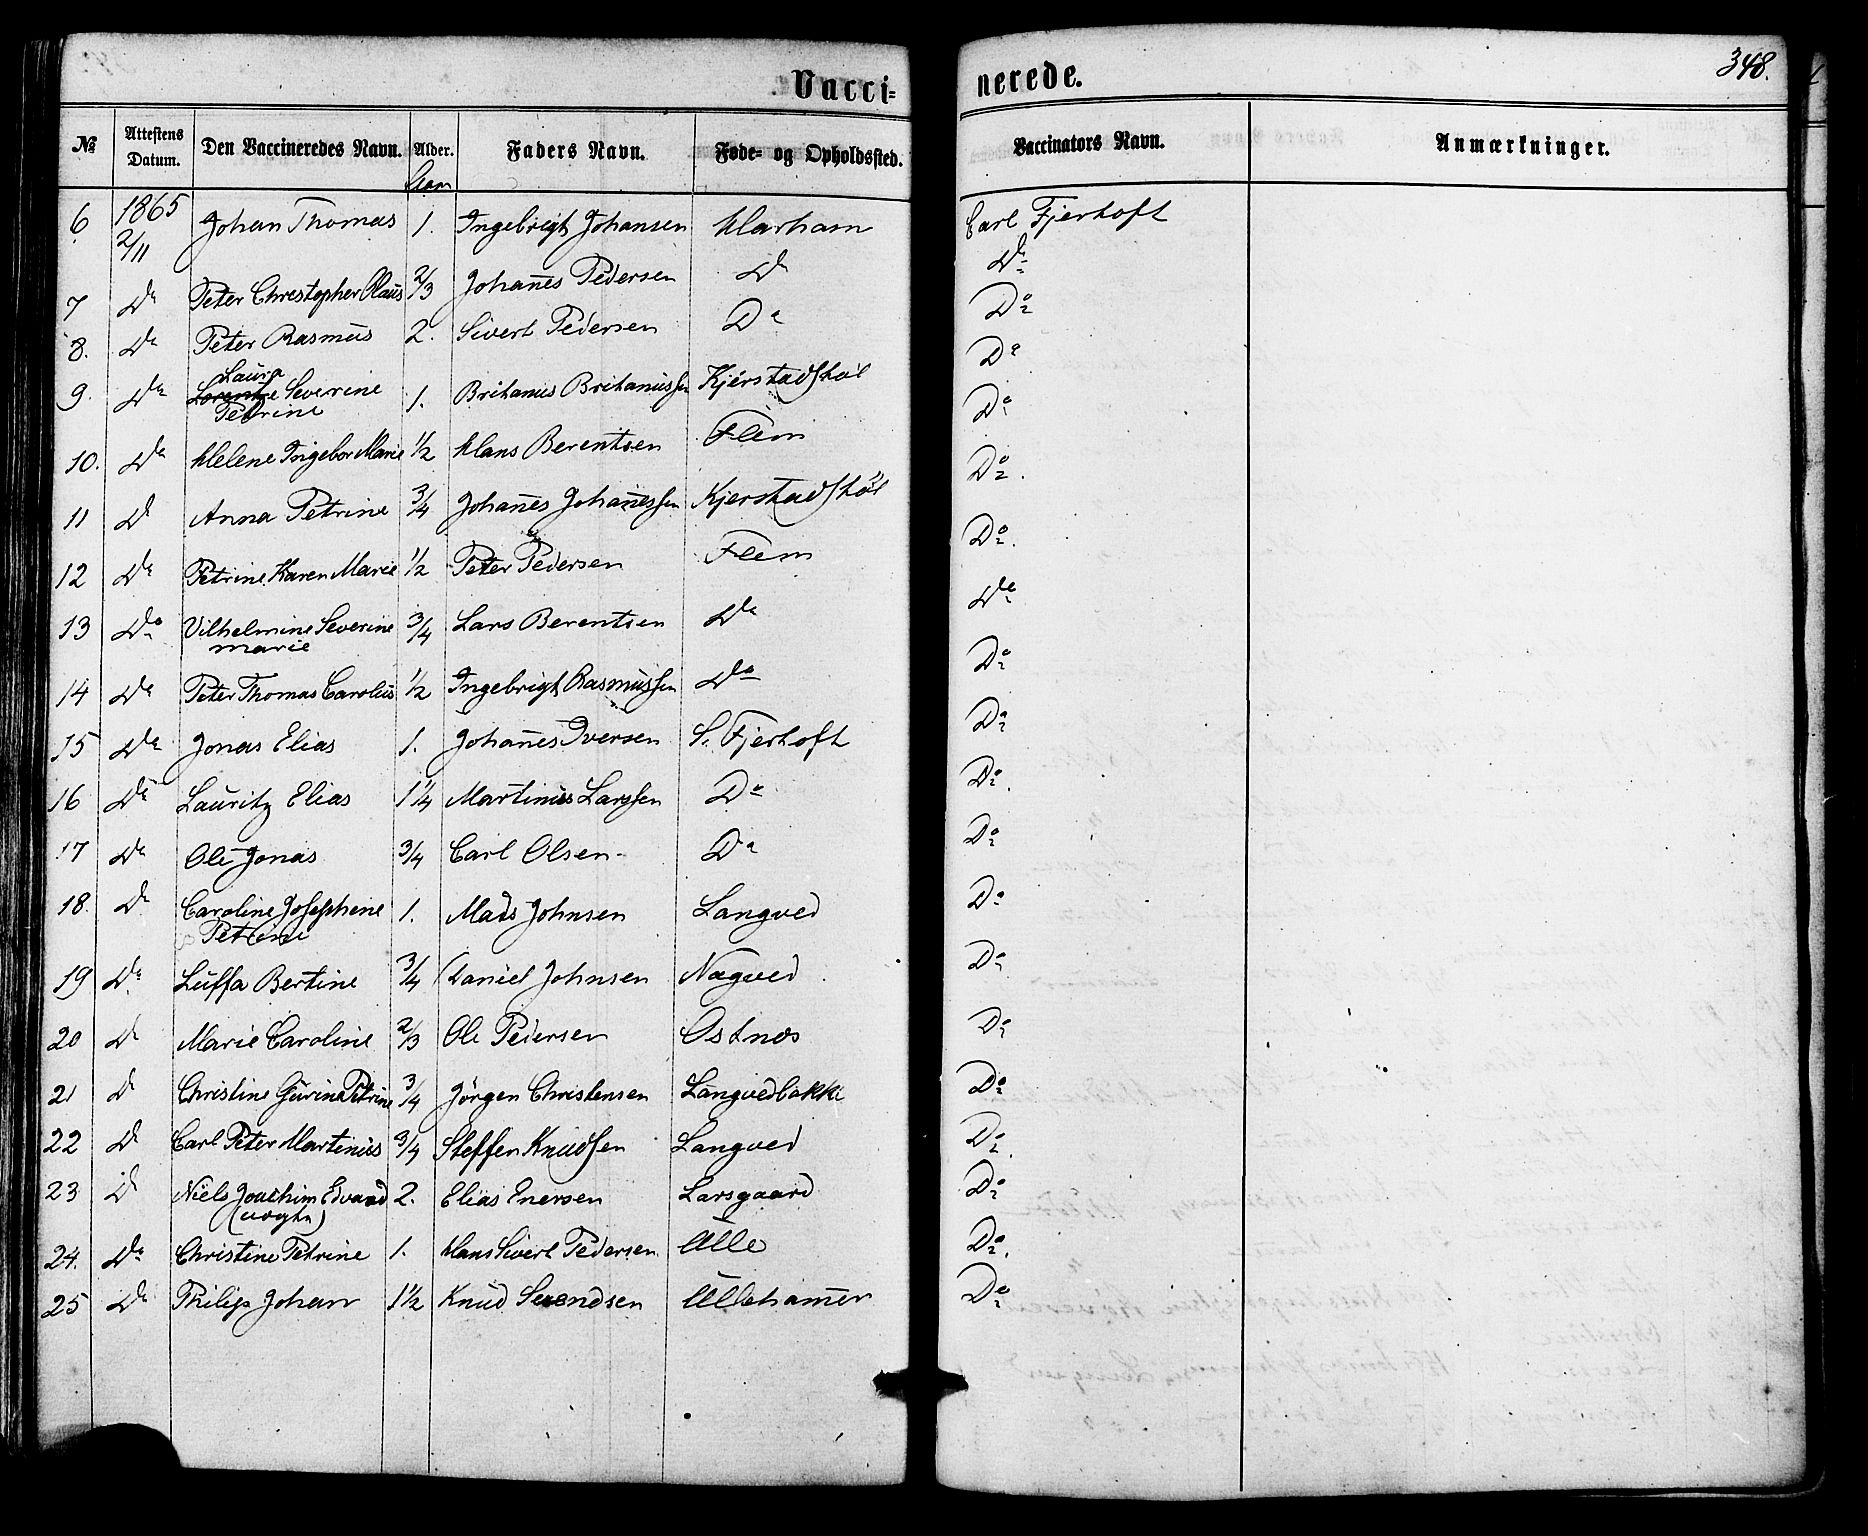 Vacci-
nerede.
348.
№ Attestens Datum. Den Vaccineredes Navn. Alder. Faders Navn. Føde- og Opholdssted. Vaccinators Navn. Anmærkninger.
Aar
6 1865 2/11 Johan Thomas 1. Ingebrigt Johansen Harham Carl Fjertoft
7 Do Peter Christopher Olaus 2/3 Johañes Pedersen Do Do
8. Do Peter Rasmus 2. Sivert Pedersen Do Do
9. Do Laura
Lorentse Severine 1. Britanus Britanussen Kjerstadstøl Do
Petrine
10. Do Helene Ingebor Marie 1/2 Hans Berentsen Flem Do
11 Do Anna Petrine 3/4 Johañes Johañessen Kjerstadstøl Do.
12 Do Petrine Karen Marie 1/2 Peter Pedersen Flem Do.
13 Do Vilhelmine Severine 3/4 Lars Berentsen Do Do
marie
14 Do Peter Thomas Carolus 1/2 Ingebrigt Rasmussen Do Do
15 Do Jonas Elias 1. Johañes Iversen S. Fjertoft Do
16 Do Lauritz Elias 1 1/4 Martinus Larssen Do Do.
17 Do Ole Jonas 3/4 Carl Olsen Do Do
18. Do Caroline Josephine 1. Mads Johnsen Langved Do
Petrine
19 Do Luffa Bertine 3/4 Daniel Johnsen Nogved Do
20 Do Marie Caroline 2/3 Ole Pedersen Ostnes Do
21 Do Christine Gurine Petrine 3/4 Jörgen Christensen Langvedbakke Do
22 Do Carl Peter Martinus 3/4 Steffen Knudsen Langved Do.
23 Do Niels Joachim Edvard 2. Elias Enersen Larsgaard Do
(uægte)
24. Do Christine Petrine 1. Hans Sivert Pedersen Ulle Do.
25 Do Philip Johan 1 1/2 Knud Sevendsen Ullehamer Do